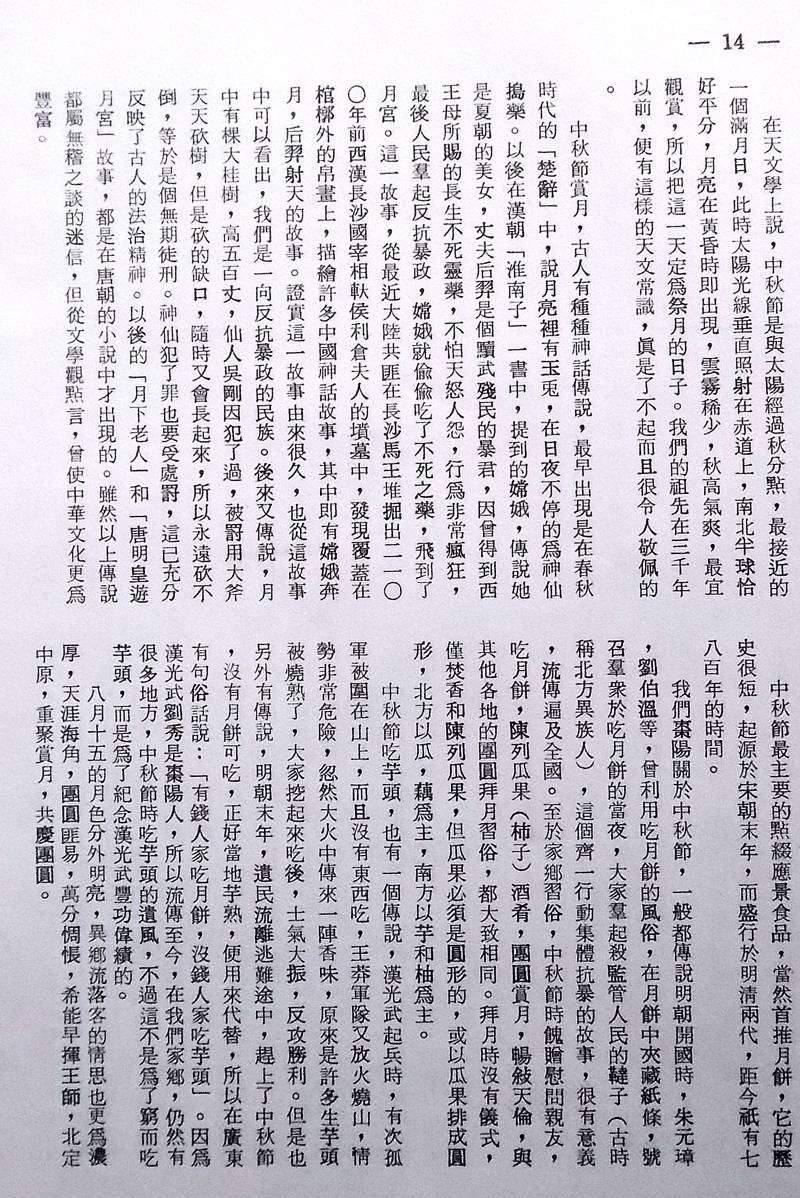 — 14 —
在天文學上說，中秋節是與太陽經過秋分點，最接近的
一個滿月日，此時太陽光線垂直照射在赤道上，南北半球恰
好平分，月亮在黃昏時即出現，雲霧稀少，秋高氣爽，最宜
觀賞，所以把這一天定為祭月的日子。我們的祖先在三千年
以前，便有這樣的天文常識，眞是了不起而且很令人敬佩的
。
中秋節賞月，古人有種種神話傳說，最早出現是在春秋
時代的「楚辭」中，說月亮裡有玉兎，在日夜不停的爲神仙
搗藥。以後在漢朝「淮南子」一書中，提到的嫦娥，傳說她
是夏朝的美女，丈夫后羿是個黷武殘民的暴君，因曾得到西
王母所賜的長生不死靈藥，不怕天怒人怨，行爲非常瘋狂，
最後人民羣起反抗暴政，嫦娥就偷偷吃了不死之藥，飛到了
月宮。這一故事，從最近大陸共匪在長沙馬王堆掘出二一〇
〇年前西漢長沙國宰相軑侯利倉夫人的墳墓中，發現覆蓋在
棺槨外的帛畫上，描繪許多中國神話故事，其中即有嫦娥奔
月，后羿射天的故事。證實這一故事由來很久，也從這故事
中可以看出，我們是一向反抗暴政的民族。後來又傳說，月
中有棵大桂樹，高五百丈，仙人吳剛因犯了過，被罸用大斧
天天砍樹，但是砍的缺口，隨時又會長起來，所以永遠砍不
倒，等於是個無期徒刑。神仙犯了罪也要受處罸，這已充分
反映了古人的法治精神。以後的「月下老人」和「唐明皇遊
月宮」故事，都是在唐朝的小說中才出現的。雖然以上傳說
都屬無稽之談的迷信，但從文學觀點言，曾使中華文化更爲
豐富。
中秋節最主要的點綴應景食品，當然首推月餅，它的歷
史很短，起源於宋朝末年，而盛行於明清兩代，距今祇有七
八百年的時間。
我們棗陽關於中秋節，一般都傳說明朝開國時，朱元璋
，劉伯溫等，曾利用吃月餅的風俗，在月餅中夾藏紙條，號
召羣衆於吃月餅的當夜，大家羣起殺監管人民的韃子（古時
稱北方異族人），這個齊一行動集體抗暴的故事，很有意義
，流傳遍及全國。至於家鄉習俗，中秋節時餽贈慰問親友，
吃月餅，陳列瓜果（柿子）酒肴，團圓賞月，暢敍天倫，與
其他各地的團圓拜月習俗，都大致相同。拜月時沒有儀式，
僅焚香和陳列瓜果，但瓜果必須是圓形的，或以瓜果排成圓
形，北方以瓜，藕爲主，南方以芋和柚爲主。
中秋節吃芋頭，也有一個傳說，漢光武起兵時，有次孤
軍被圍在山上，而且沒有東西吃，王莽軍隊又放火燒山，情
勢非常危險，忽然大火中傳來一陣香味，原來是許多生芋頭
被燒熟了，大家挖起來吃後，士氣大振，反攻勝利。但是也
另外有傳說，明朝末年，遺民流離逃難途中，趕上了中秋節
，沒有月餅可吃，正好當地芋熟，便用來代替，所以在廣東
有句俗話說：「有錢人家吃月餅，沒錢人家吃芋頭」。因爲
漢光武劉秀是棗陽人，所以流傳至今，在我們家鄉，仍然有
很多地方，中秋節時吃芋頭的遺風，不過這不是爲了窮而吃
芋頭，而是爲了紀念漢光武豐功偉績的。
八月十五的月色分外明亮，異鄉流落客的情思也更爲濃
厚，天涯海角，團圓匪易，萬分惆悵，希能早揮王師，北定
中原，重聚賞月，共慶團圓。